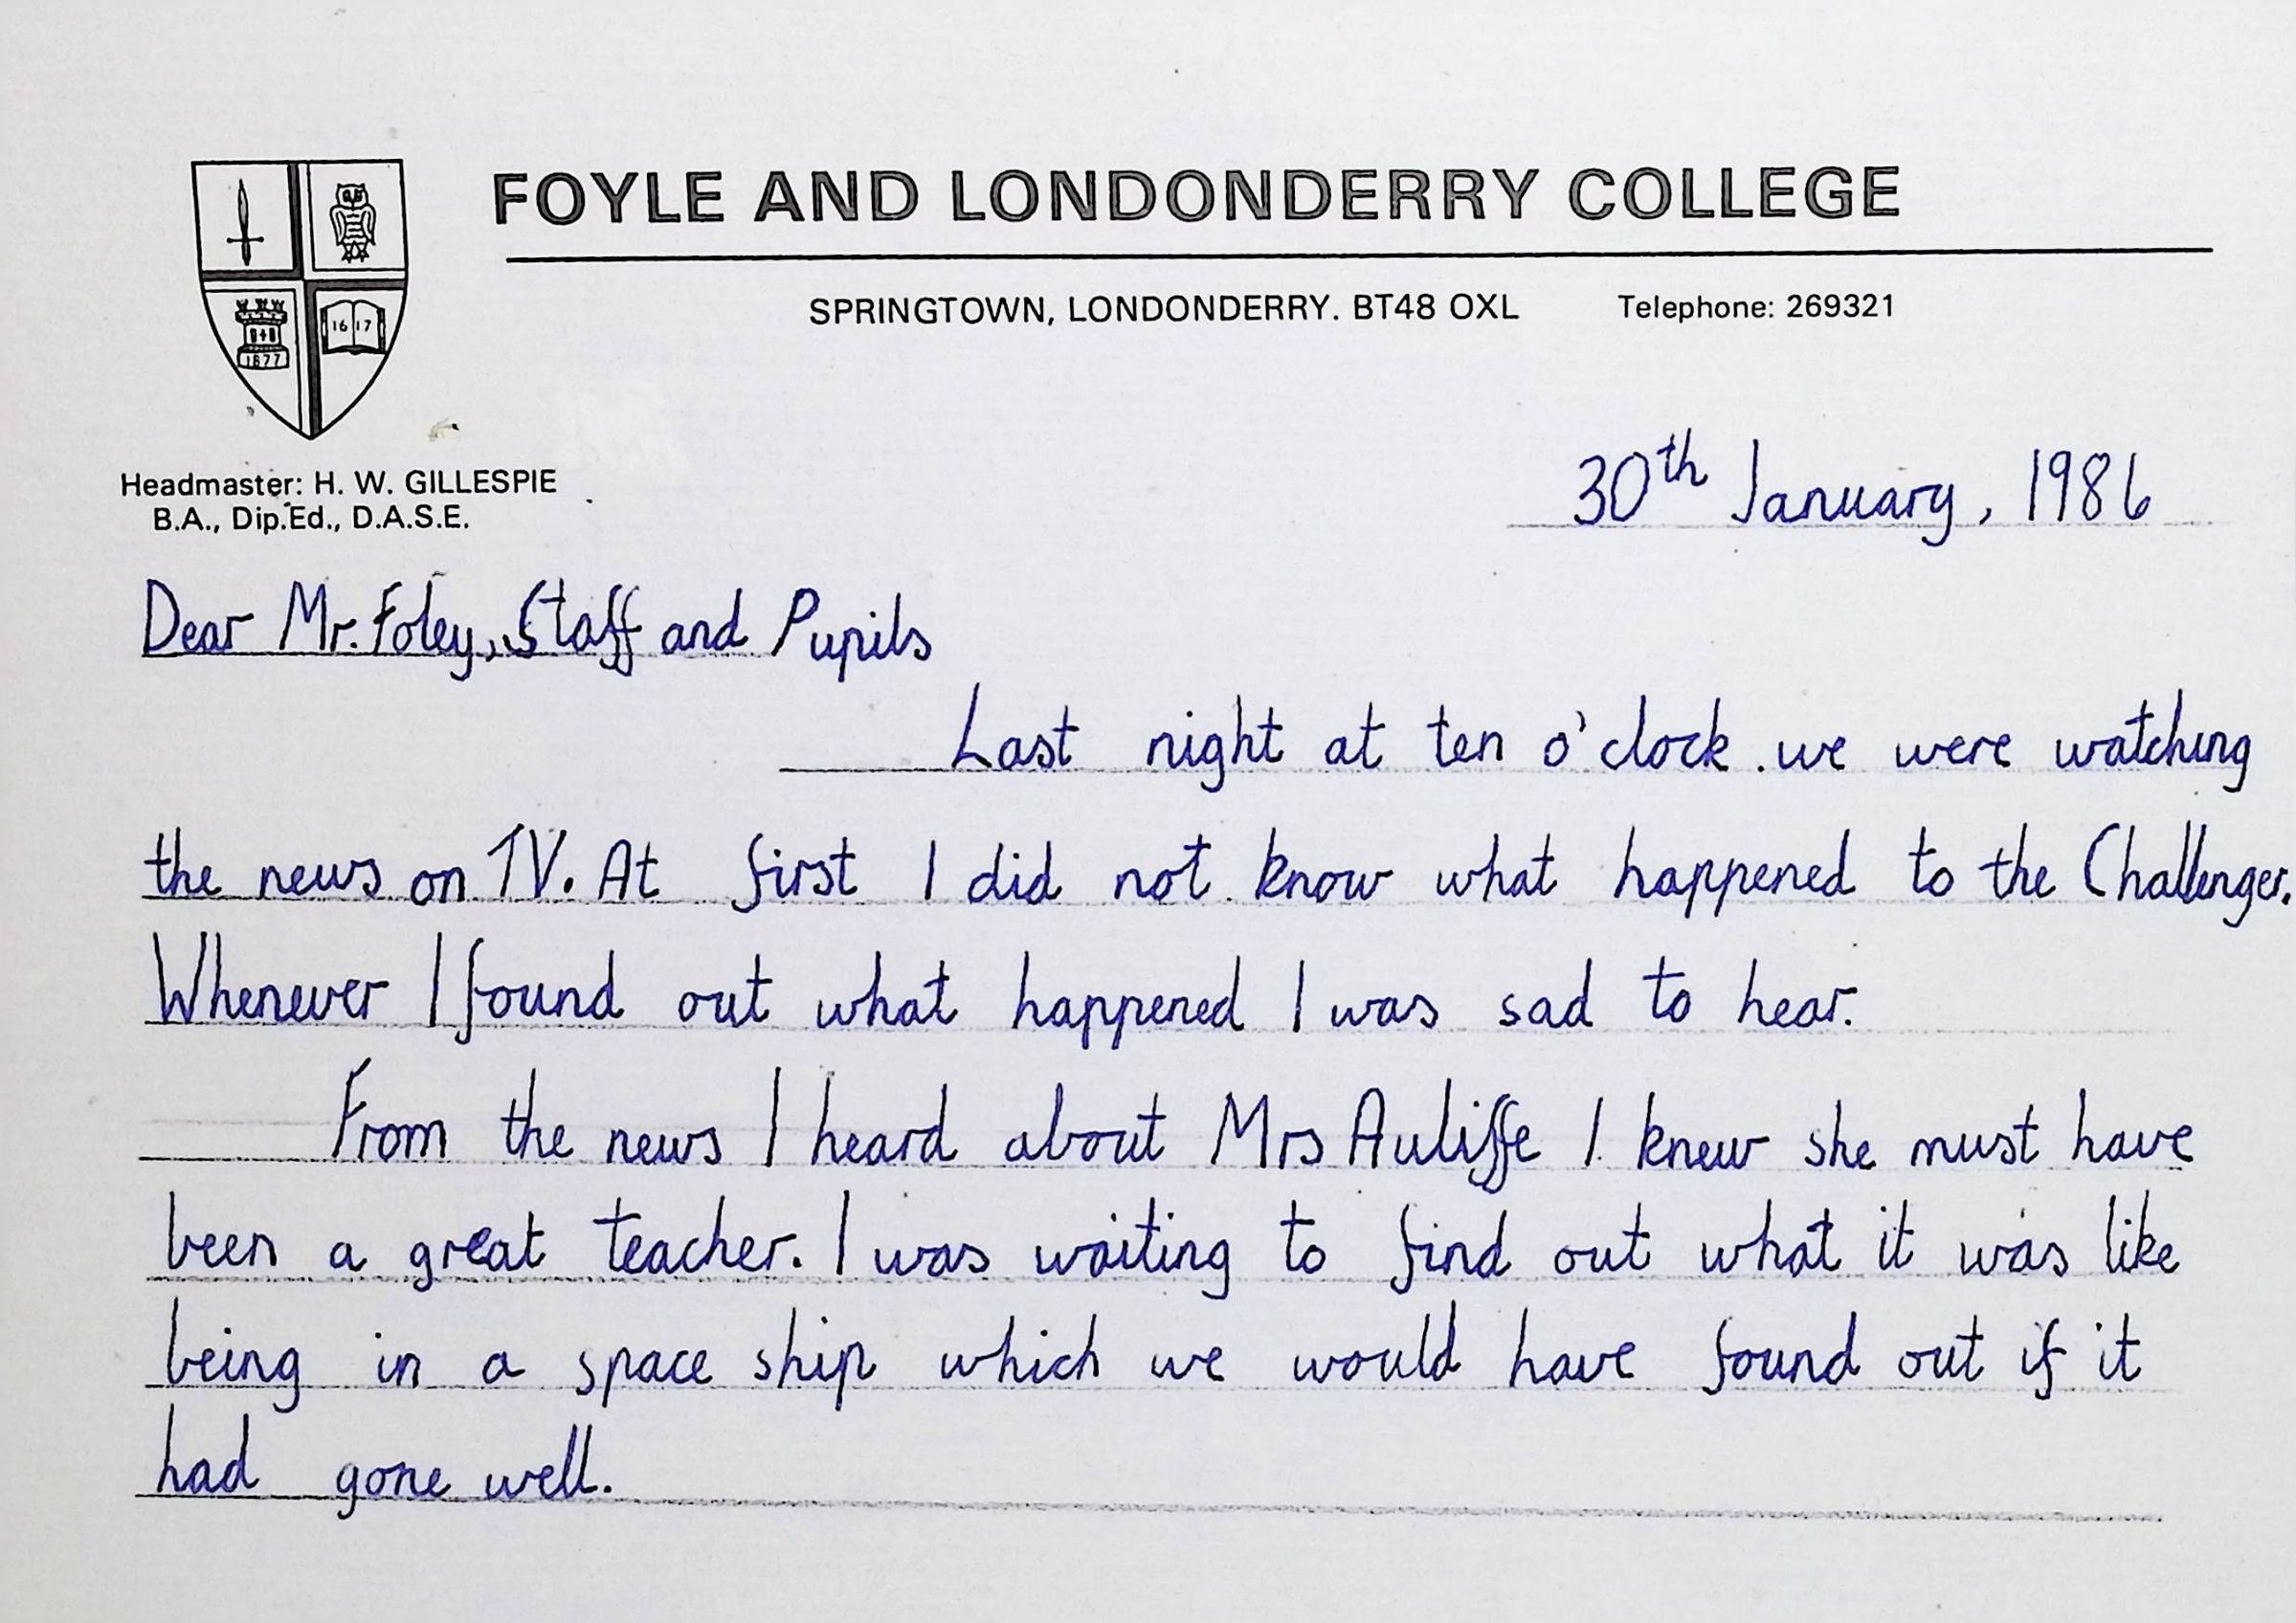 FOYLE AND LONDONDERRY COLLEGE
SPRINGTOWN, LONDONDERRY. BT48 OXL Telephone: 269321
1877
16 17
Headmaster: H. W. GILLESPIE
B.A., Dip.Ed., D.A.S.E.
30th January, 1986
Dear Mr. Foley, Staff and Pupils
Last night at ten o'clock we were watching
the news on TV. At first I did not know what happened to the Challenger.
Whenever I found out what happened I was sad to hear.
From the news I heard about Mrs Auliffe I knew she must have
been a great teacher. I was waiting to find out what it was like
being in a space ship which we would have found out if it
had gone well.